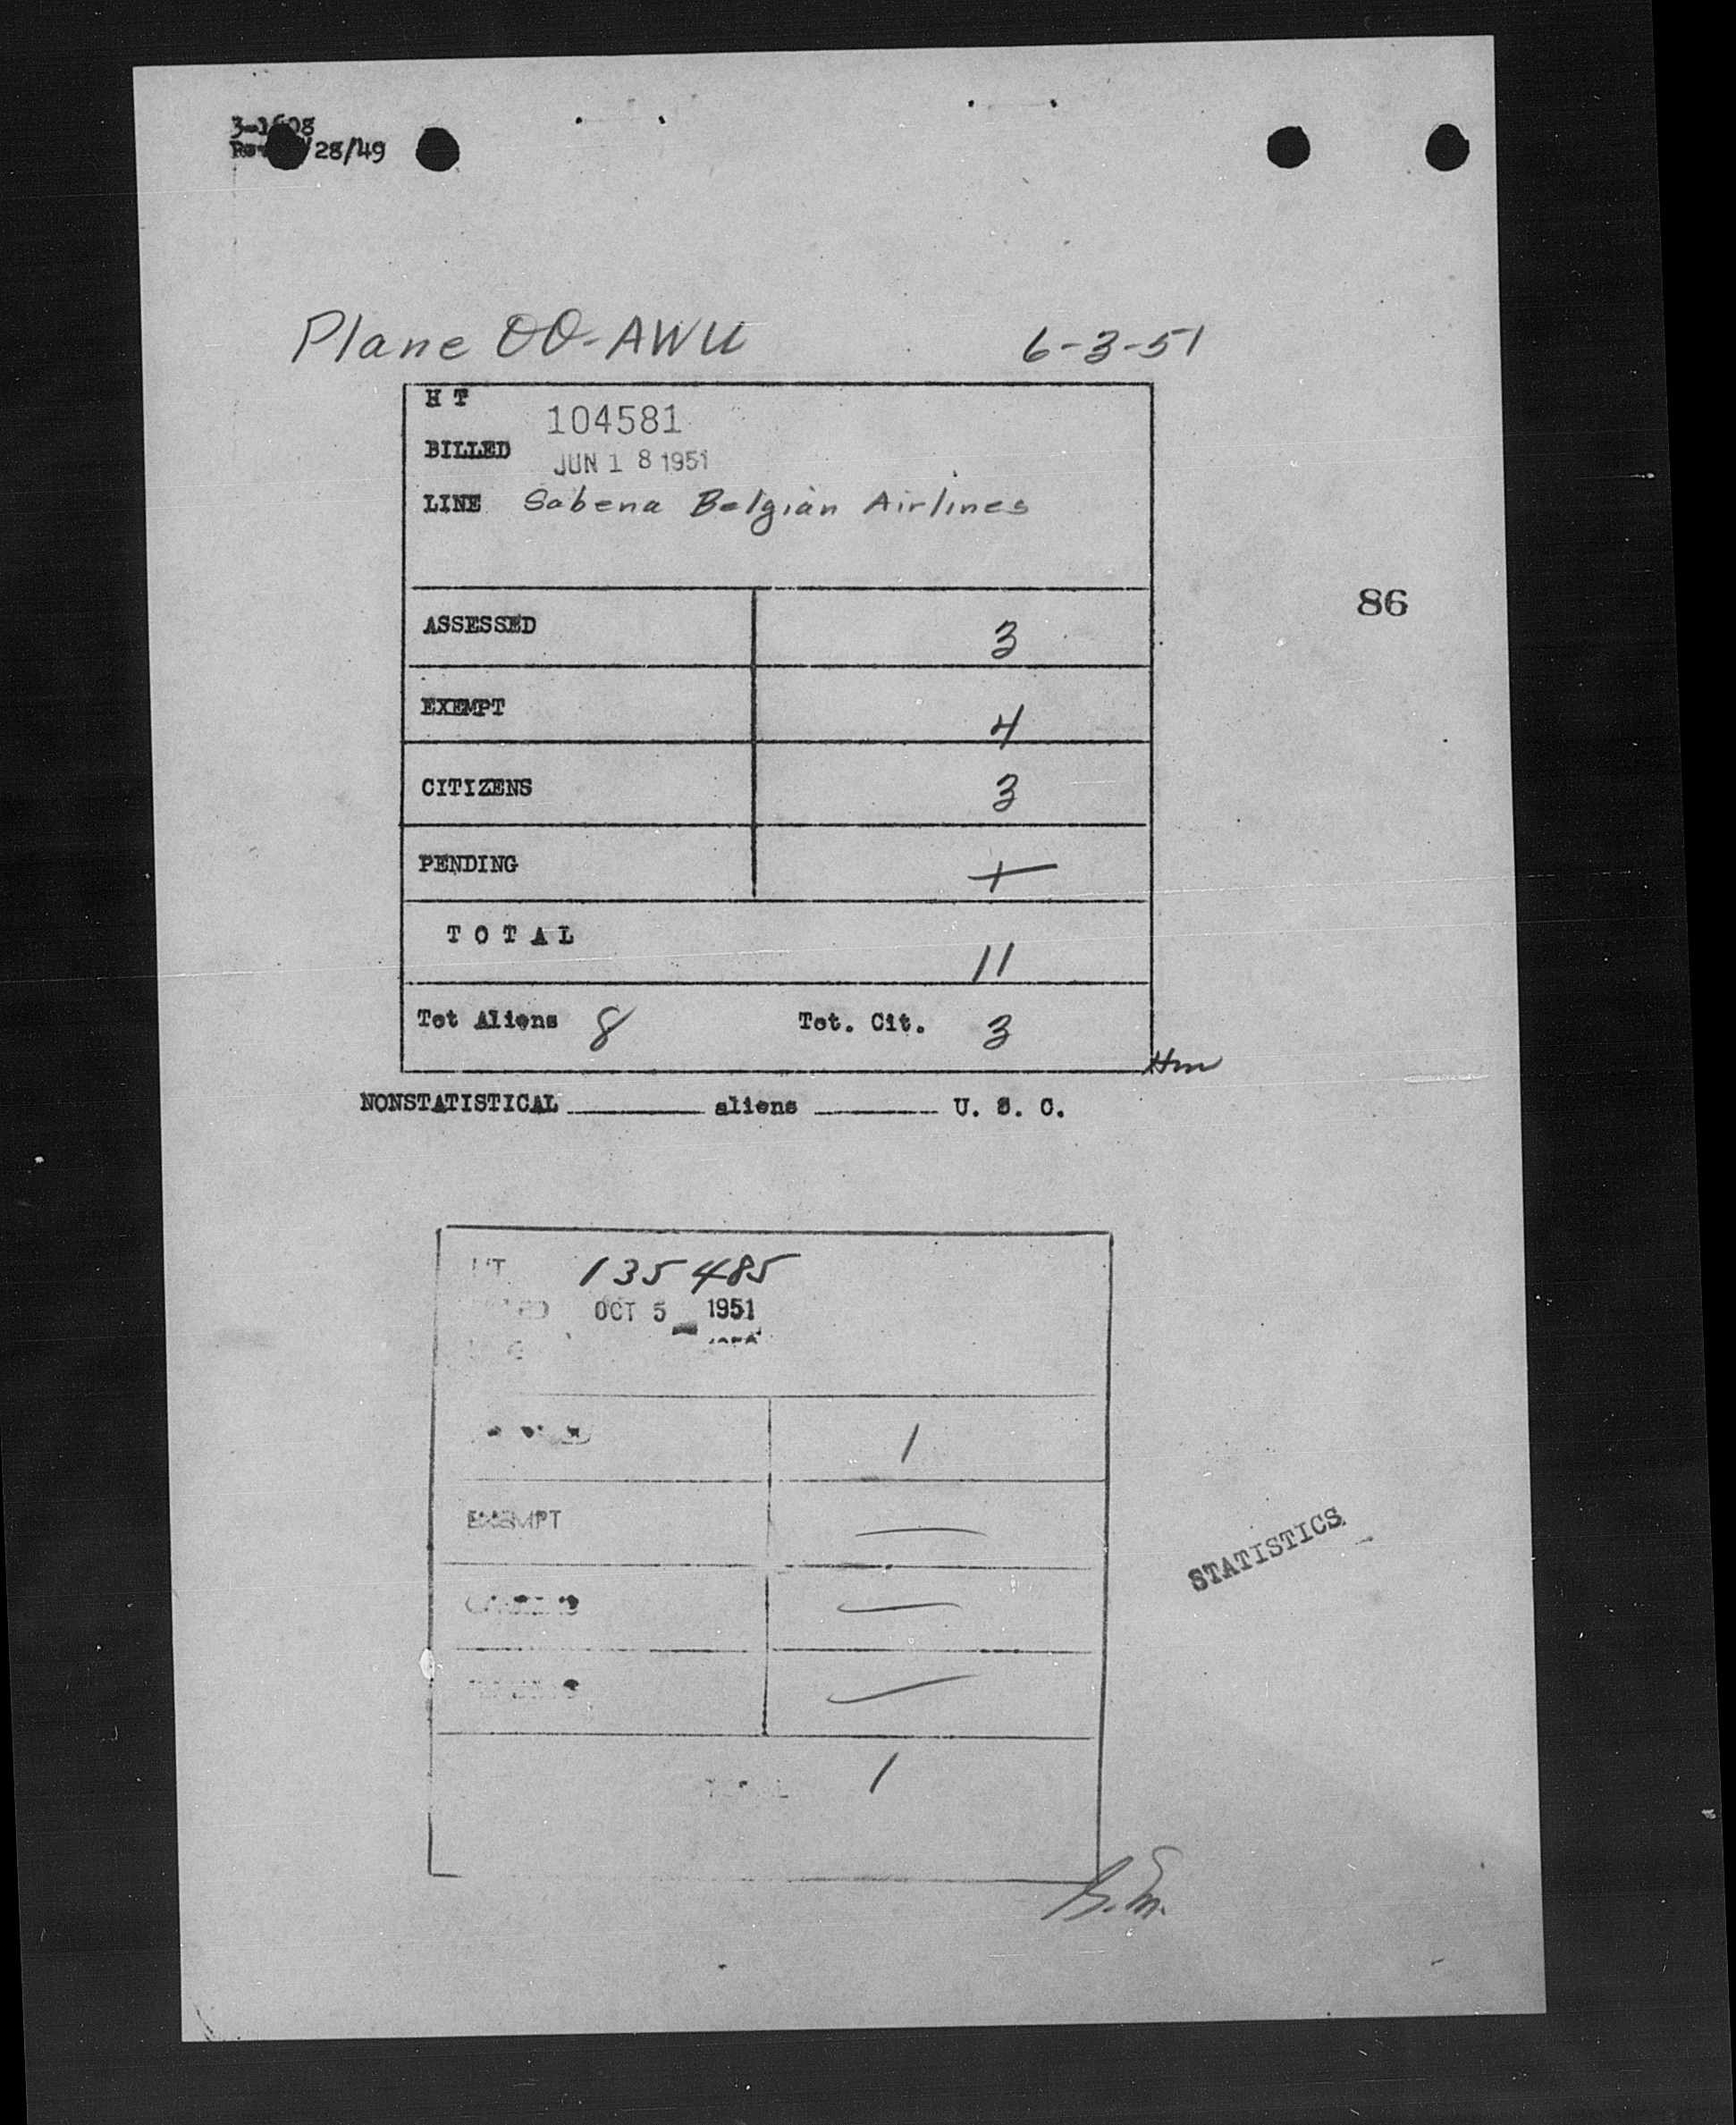 3-1608
28/49
Plane OO-AWU 6-3-51
H T 104581
BILLED JUN 18 1951
LINE Sabena Belgian Airlines
86
ASSESSED 3
EXEMPT 4
CITIZENS 3
PENDING 1
TOTAL 11
Tot Aliens 8 Tot. Cit. 3
Hm
NONSTATISTICAL aliens U. S. C.
HT 135485
OCT 5 1951
1
EXEMPT —
—
—
TOTAL 1
STATISTICS